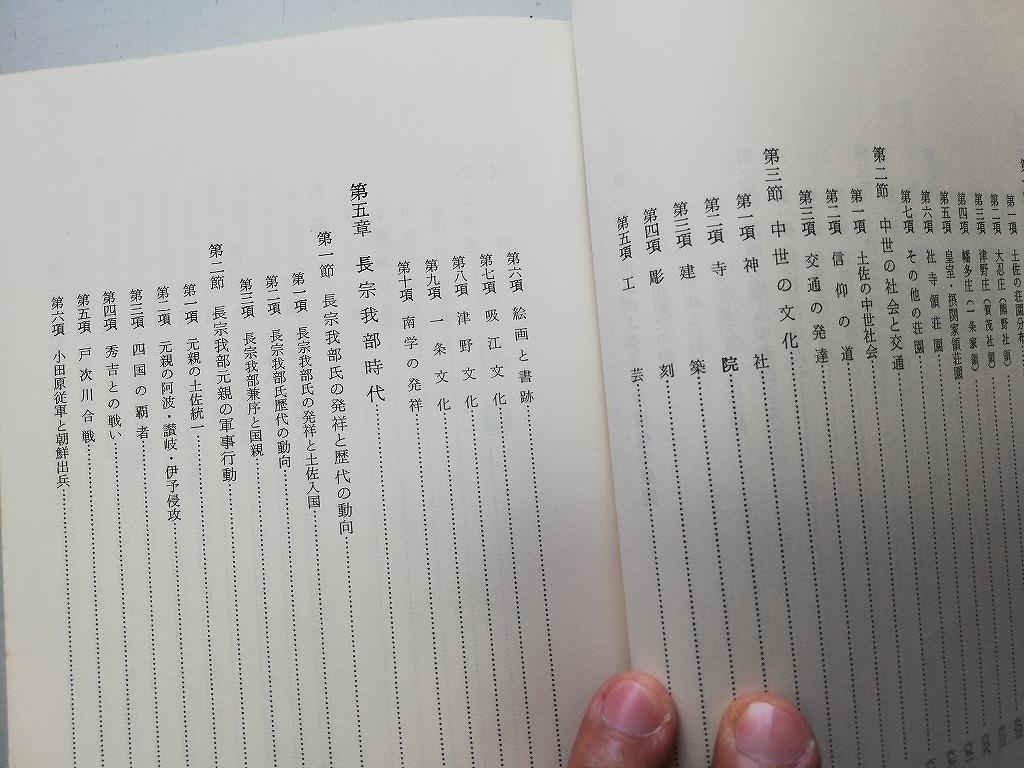 第一項 土佐の荘園分布
第二項 大忍庄(熊野社領)
第三項 津野庄(賀茂社領)
第四項 幡多庄(一条家領)
第五項 皇室・摂関家領荘園
第六項 社寺領荘園
第七項 その他の荘園
第二節 中世の社会と交通
第一項 土佐の中世社会
第二項 信仰の道
第三項 交通の発達
第三節 中世の文化
第一項 神社
第二項 寺院
第三項 建築
第四項 彫刻
第五項 工芸
第六項 絵画と書跡
第七項 吸江文化
第八項 津野文化
第九項 一条文化
第十項 南学の発祥
第五章 長宗我部時代
第一節 長宗我部氏の発祥と歴代の動向
第一項 長宗我部氏の発祥と土佐入国
第二項 長宗我部氏歴代の動向
第三項 長宗我部兼序と国親
第二節 長宗我部元親の軍事行動
第一項 元親の土佐統一
第二項 元親の阿波・讃岐・伊予侵攻
第三項 四国の覇者
第四項 秀吉との戦い
第五項 戸次川合戦
第六項 小田原従軍と朝鮮出兵